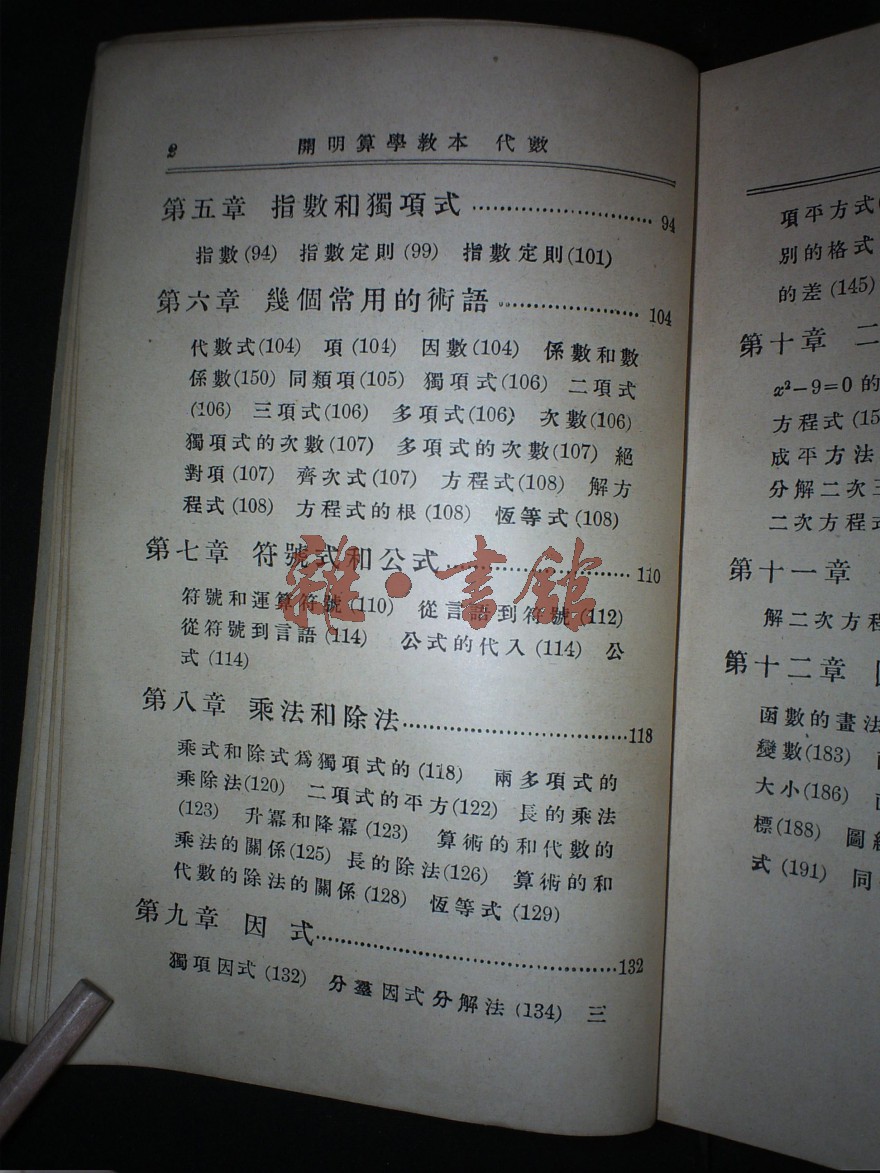 2 開明算學教本 代數
第五章 指數和獨項式 94
指數(94) 指數定則(99) 指數定則(101)
第六章 幾個常用的術語 104
代數式(104) 項(104) 因數(104) 係數和數
係數(150) 同類項(105) 獨項式(106) 二項式
(106) 三項式(106) 多項式(106) 次數(106)
獨項式的次數(107) 多項式的次數(107) 絕
對項(107) 齊次式(107) 方程式(108) 解方
程式(108) 方程式的根(108) 恆等式(108)
第七章 符號式和公式 110
符號和運算符號(110) 從言語到符號(112)
從符號到言語(114) 公式的代入(114) 公
式(114)
第八章 乘法和除法 118
乘式和除式爲獨項式的(118) 兩多項式的
乘除法(120) 二項式的平方(122) 長的乘法
(123) 升冪和降冪(123) 算術的和代數的
乘法的關係(125) 長的除法(126) 算術的和
代數的除法的關係(128) 恆等式(129)
第九章 因 式 132
獨項因式(132) 分羣因式分解法(134) 三
項平方式
別的格式
的差(145)
第十章 二
x²-9=0的
方程式(15
成平方法
分解二次三
二次方程式
第十一章
解二次方程
第十二章
函數的畫法
變數(183)
大小(186)
標(188) 圖
式(191) 同
雜·書館